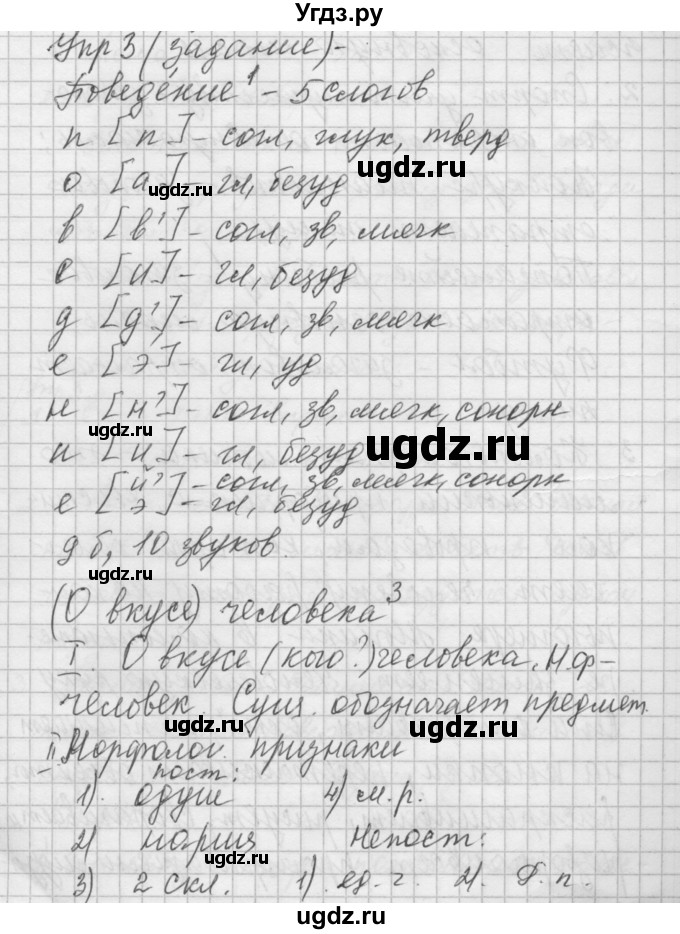 Угдз.ру
Упр 3 (задание)-
Поведение¹ - 5 слогов
п [п] - согл, глух, тверд
ugdz.ru ugdz.ru
о [а] - гл, безуд
в [в'] - согл, зв, мягк
е [и] - гл, безуд
д [д'] - согл, зв, мягк
е [э] - гл, уд
н [н'] - согл, зв, мягк, сонорн
ugdz.ru ugdz.ru
и [и] - гл, безуд
[й'] - согл, зв, мягк, сонорн
е [э] - гл, безуд
9 б, 10 звуков.
ugdz.ru
(О вкусе) человека³
I. О вкусе (кого?) человека, Н.ф-
человек. Сущ. обозначает предмет.
ugdz.ru
II Морфолог. признаки
пост:
1) одуш 4) м.р.
2) нариц Непост:
ugdz.ru
3) 2 скл. 1) ед. ч. 2) Р. п.
ugdz.ru